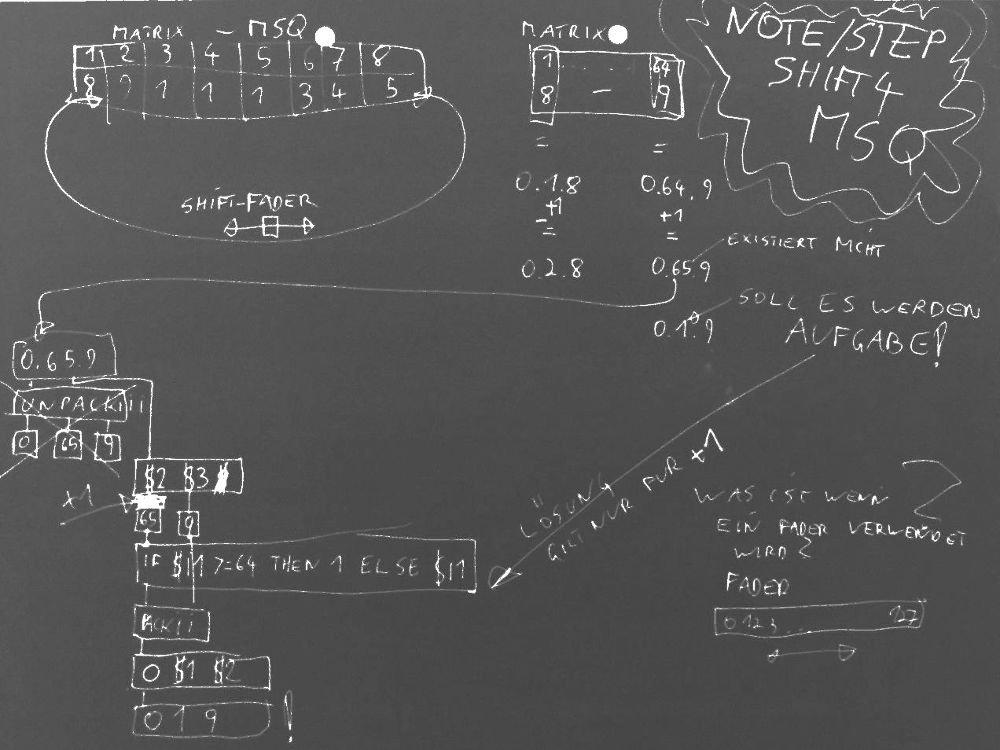 MATRIX - MSQ
1 2 3 4 5 6 7 8
8 2 1 1 1 3 4 5
SHIFT-FADER
MATRIX
1 . . . . 64
8 - 9
= =
0.1.8 0.64.9
+1 +1
= =
0.2.8 0.65.9
EXISTIERT NICHT
0.1.9
SOLL ES WERDEN
AUFGABE!
NOTE/STEP
SHIFT 4
MSQ
0.65.9
UNPACK iii
0 65 9
$2 $3
+1
65 9
IF $i1 >=64 THEN 1 ELSE $i1
PACK i i
0 $1 $2
0 1 9 !
LÖSUNG
GILT NUR FÜR +1
WAS IST WENN
EIN FADER VERWENDET
WIRD ?
FADER
0 1 2 3 . . 127